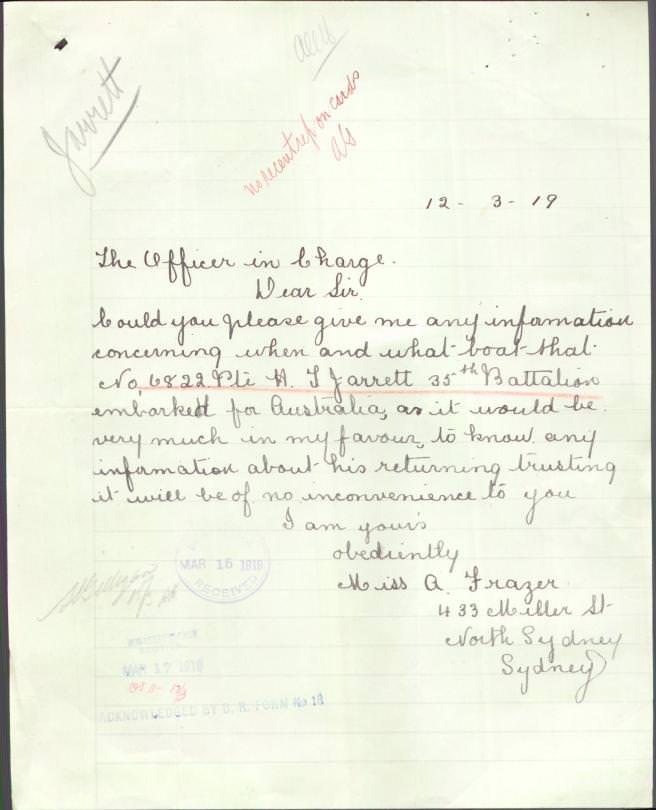 Jarrett
no recent rep on cards
12 - 3 - 19
The Officer in Charge.
Dear Sir.
Could you please give me any information
concerning when and what boat that
No, 6822 Pte H. T Jarrett 35th Battalion
embarked for Australia, as it would be
very much in my favour, to know any
information about his returning trusting
it will be of no inconvenience to you
I am your's
obediently
Miss A. Frazer
433 Miller St
North Sydney
Sydney
MAR 15 1919
RECEIVED
MAR 17 1919
ACKNOWLEDGED BY B. R. FORM No 18